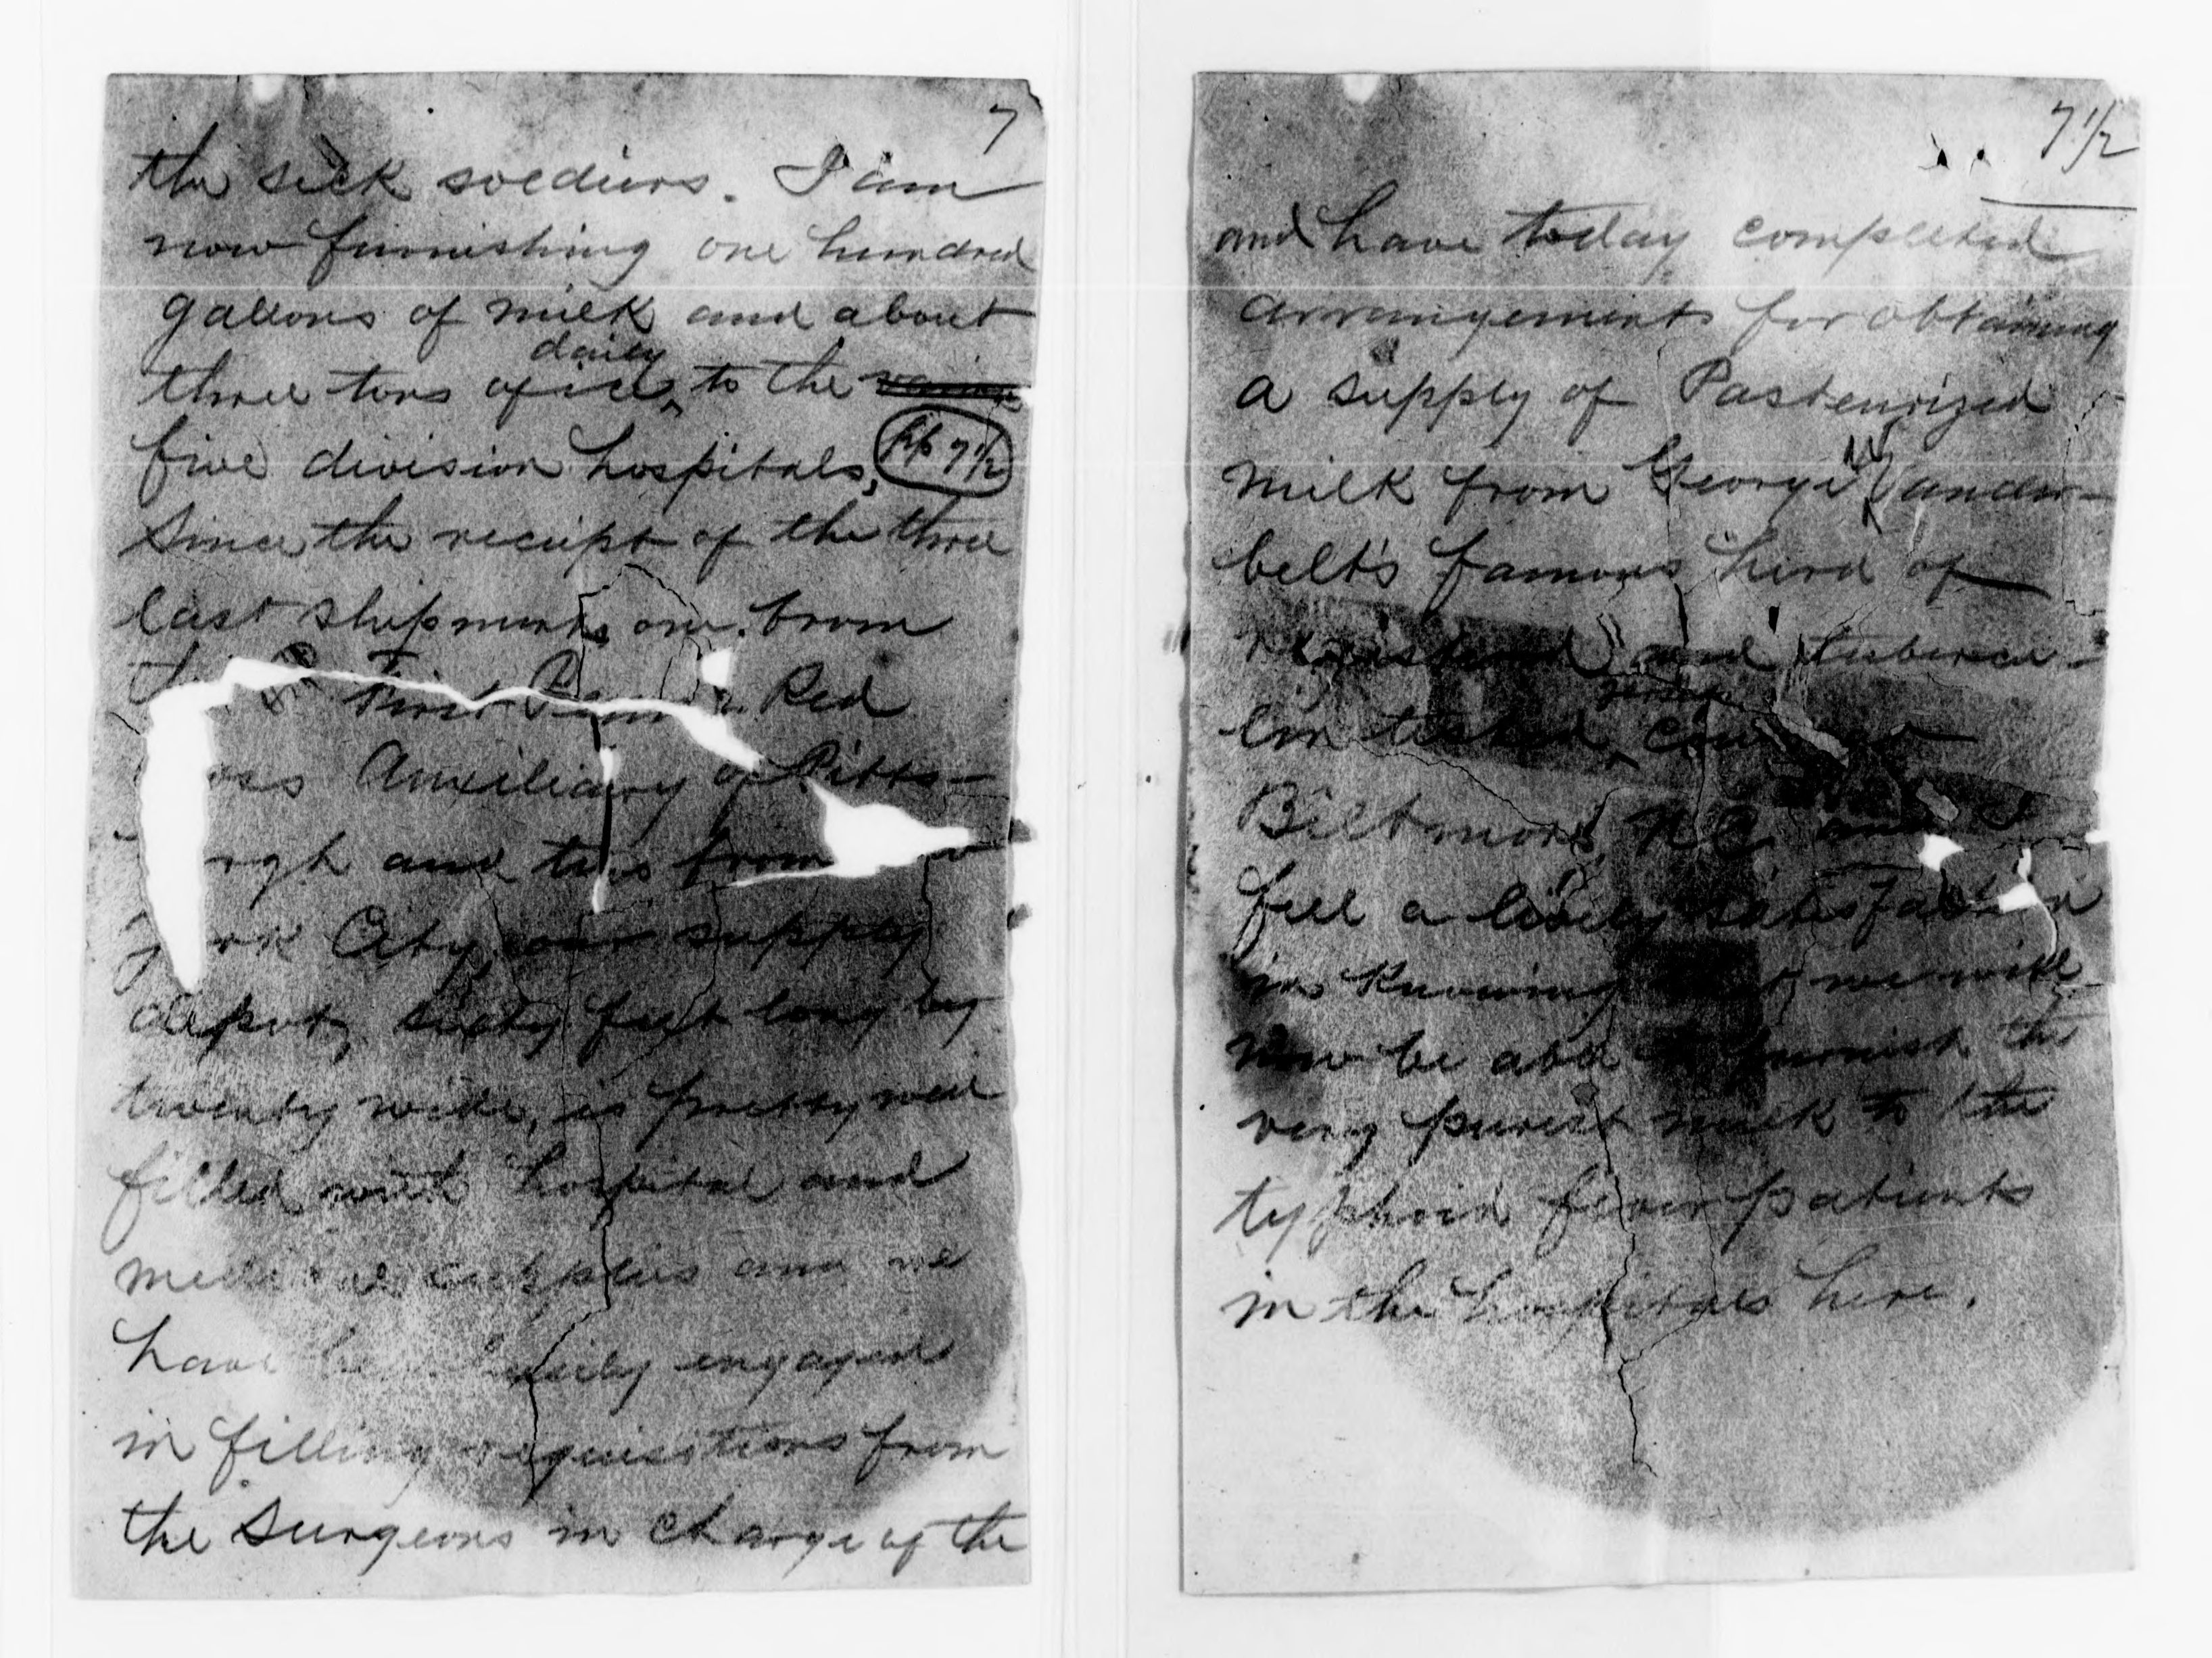 7
the sick soldiers. I am
now furnishing one hundred
gallons of milk and about
daily
three tons of ice to the
five division hospitals,
pp 7 1/2
Since the receipt of the three
last shipments one from
First Penn Red
oss Auxiliary of Pitts-
rgh and two from
ork City, our supply
depot, sixty feet long by
twenty wide, is pretty well
filled with hospital and
medical supplies and we
have been busily engaged
in filling requisitions from
the Surgeons in charge of the
7 1/2
and have today completed
arrangements for obtaining
a supply of Pasteurized
milk from George W Vander-
belt's famous herd of
registered and tubercu-
lin tested, cows at
Biltmore, N.C. and I
feel a lively satisfaction
in knowing that we will
now be able to furnish the
very purest milk to the
typhoid fever patients
in the hospitals here.